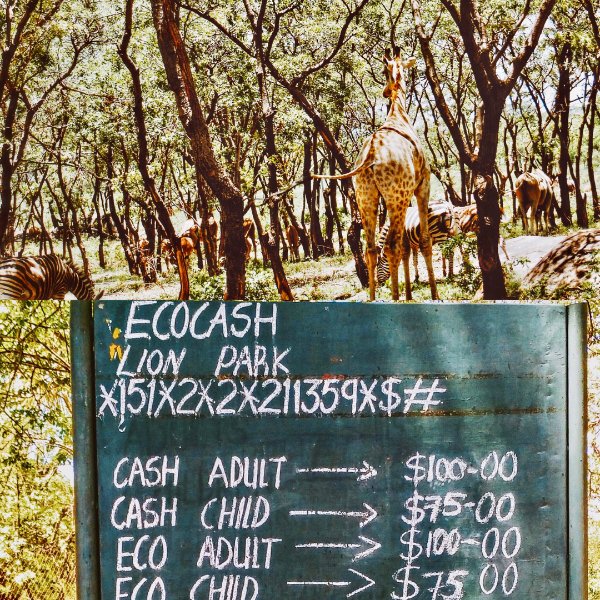 ECOCASH
LION PARK
*151*2*2*211359*$#
CASH ADULT → $100-00
CASH CHILD → $75-00
ECO ADULT → $100-00
ECO CHILD → $75 00